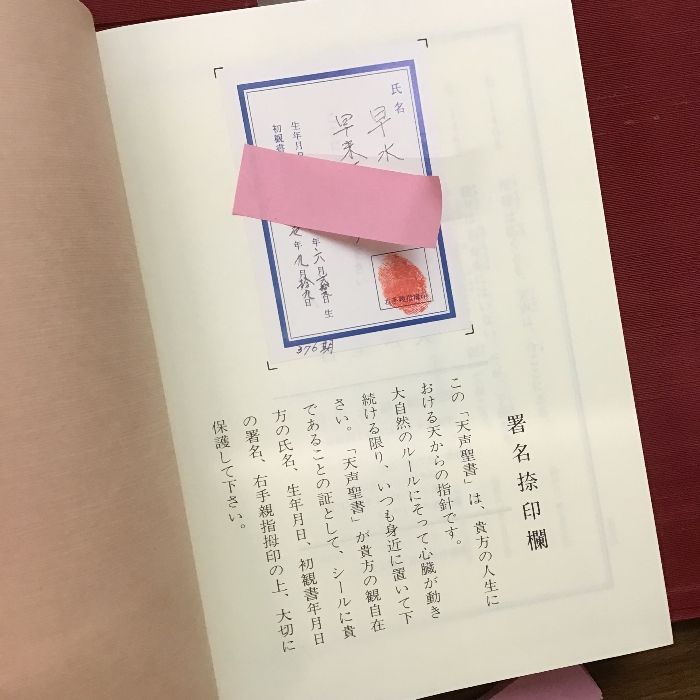 氏名
早水
生年月日
初観書
年六月
生
年九月拾九日
右手親指拇印
376期
署名捺印欄
この「天声聖書」は、貴方の人生に
おける天からの指針です。
大自然のルールにそって心臓が動き
続ける限り、いつも身近に置いて下
さい。「天声聖書」が貴方の観自在
であることの証として、シールに貴
方の氏名、生年月日、初観書年月日
の署名、右手親指拇印の上、大切に
保護して下さい。